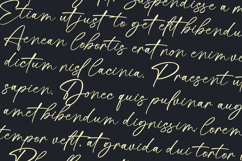 Suspendisse a m
Etiam ut justo get elit bibendu
Aenean lobortis erat non enim ve
dictum nisl lacinia. Praesent ut
sapien. Donec quis pulvinar aug
amet bibendum dignissim lorem
tempor velit, at gravida dui tortor